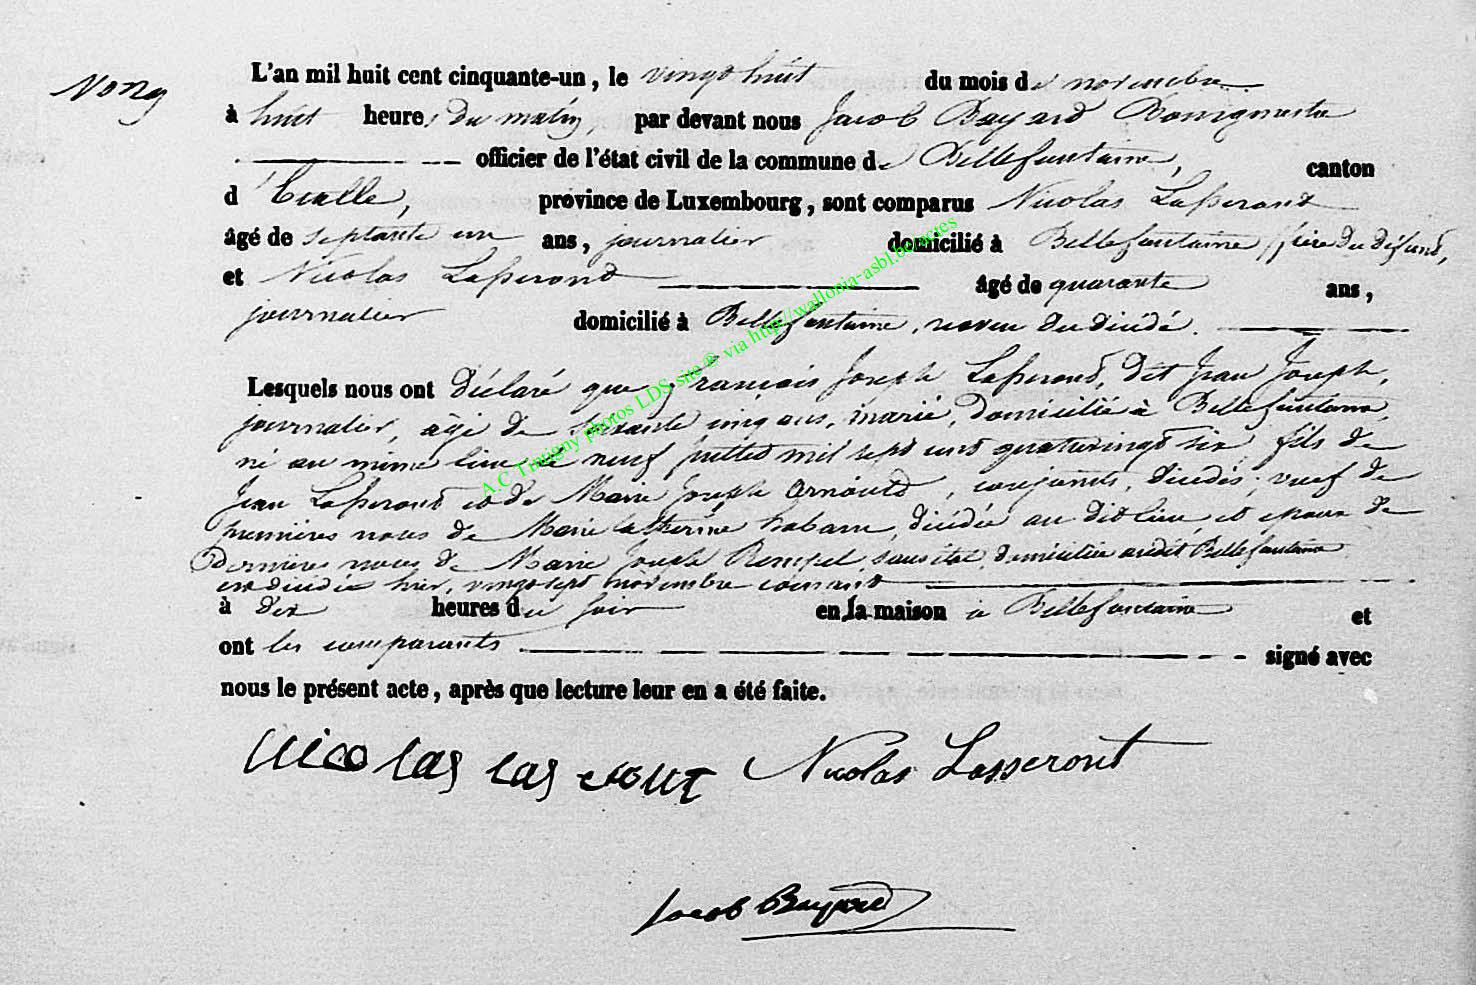 N° 029
L'an mil huit cent cinquante-un, le vingt huit du mois de novembre
à huit heures du matin, par devant nous Jacob Bayard Bourgmestre
officier de l'état civil de la commune de Bellefontaine, canton
d'Etalle, province de Luxembourg, sont comparus Nicolas Lasseront
âgé de septante un ans, journalier domicilié à Bellefontaine, frère du défunt,
et Nicolas Lasseront âgé de quarante ans,
journalier domicilié à Bellefontaine, neveu du décédé.
Lesquels nous ont déclaré que François Joseph Lasseront, dit Jean Joseph,
journalier, âgé de soixante cinq ans, marié, domicilié à Bellefontaine,
né au même lieu le neuf juillet mil sept cent quatrevingt six, fils de
Jean Lasseront et de Marie Joseph Arnould, conjoints, décédés; veuf de
premières noces de Marie Catherine Habran, décédée au dit lieu, et epoux de
Dernières noces de Marie Joseph sans état, domiciliée audit Bellefontaine
est décédé hier, vingt sept novembre courant
à dix heures du soir en la maison à Bellefontaine et
ont les comparants signé avec
nous le présent acte, après que lecture leur en a été faite.
Nicolas Lasseront
Jacob Bayard
A.C Tintigny photos LDS site ® via http://wallonia-asbl.be/actes